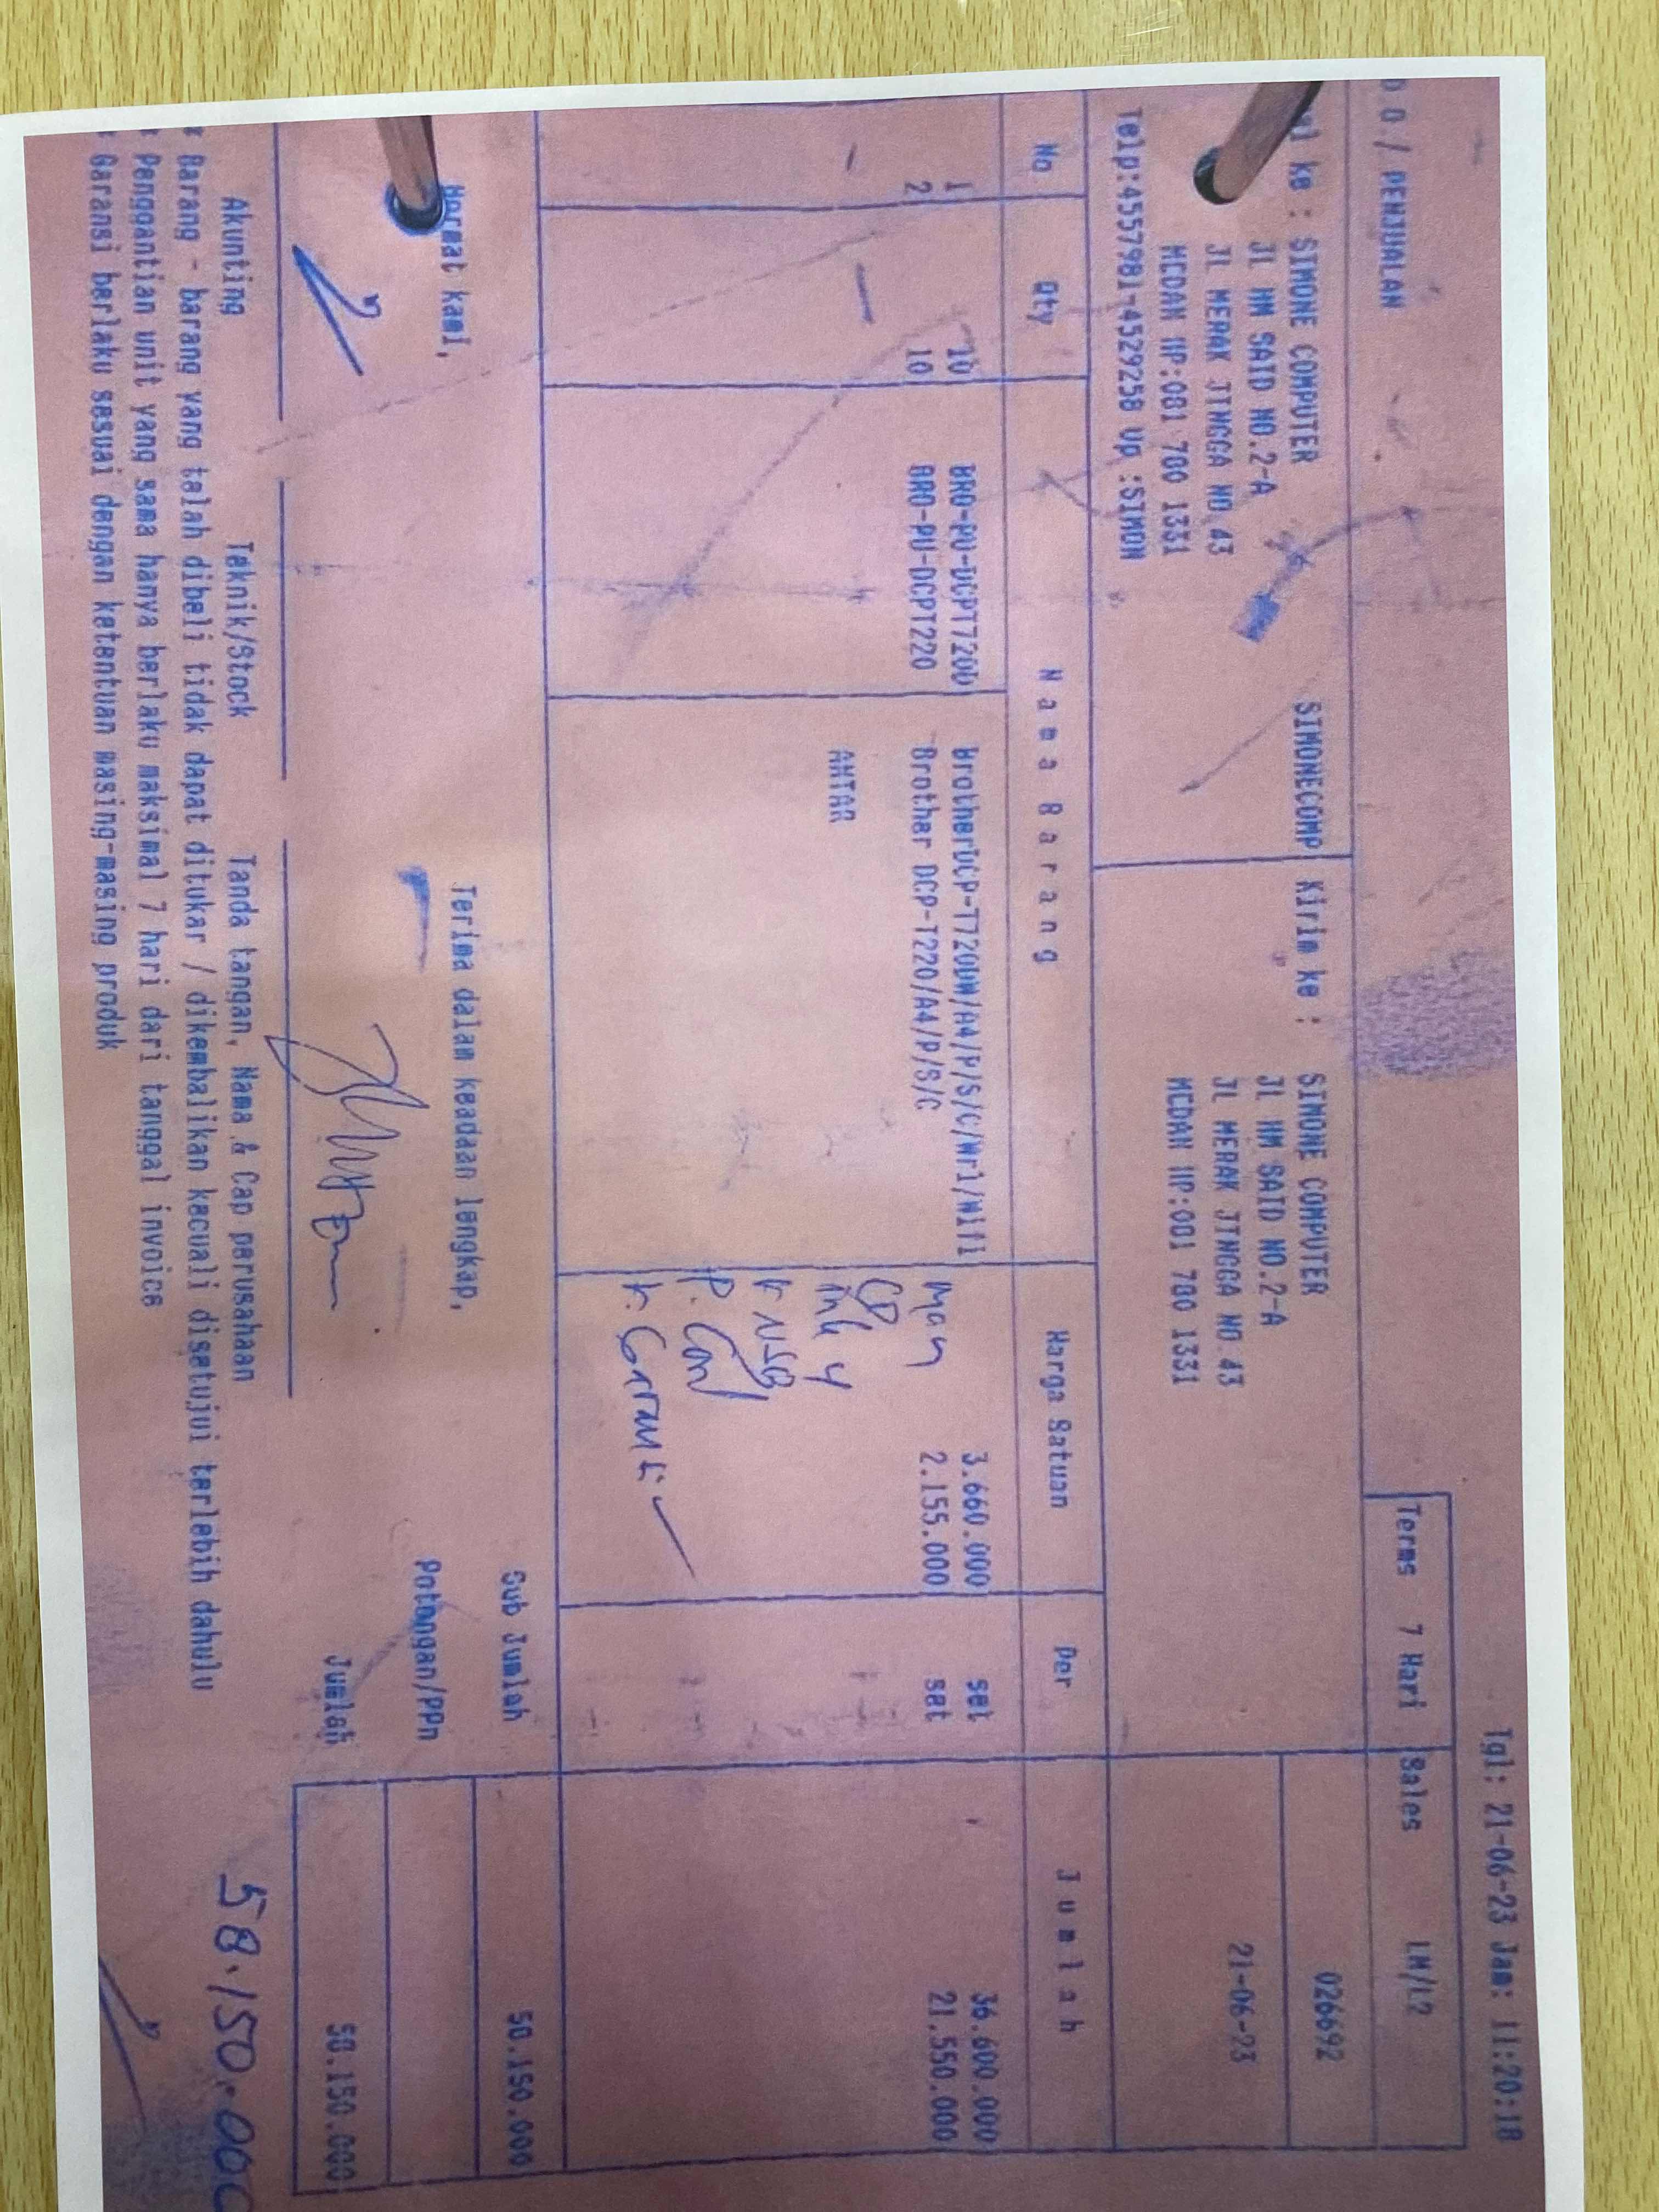 Tgl: 21-06-23 Jam: 11:20:18
/ PENJUALAN
Terms 7 Hari Sales
ke : SIMONE COMPUTER SIMONECOMP Kirim ke : SIMONE COMPUTER 026692
Jl HM SAID NO.2-A Jl HM SAID NO.2-A
JL MERAK JINGGA NO 43 JL MERAK JINGGA NO 43 21-06-23
MEDAN HP:081 780 1331 MEDAN HP:081 780 1331
Telp:4557981-4529258 Up :SIMON
No Qty Nama Barang Harga Satuan Per Jumlah
1 10 BRO-PU-DCPT720D BrotherDCP-T720DW/A4/P/S/C/Wrl/Wifi 3.660.000 set 36.600.000
2 10 BRO-PU-DCPT220 Brother DCP-T220/A4/P/S/C 2.155.000 set 21.550.000
ANTAR
CD
k. USB
k. Garansi
Sub Jumlah 58.150.000
Hormat kami, Terima dalam keadaan lengkap,
Potongan/PPn
Jumlah 58.150.000
Akunting Teknik/Stock Tanda tangan, Nama & Cap perusahaan
58.150.000
* Barang - barang yang telah dibeli tidak dapat ditukar / dikembalikan kecuali disetujui terlebih dahulu
* Penggantian unit yang sama hanya berlaku maksimal 7 hari dari tanggal invoice
* Garansi berlaku sesuai dengan ketentuan masing-masing produk